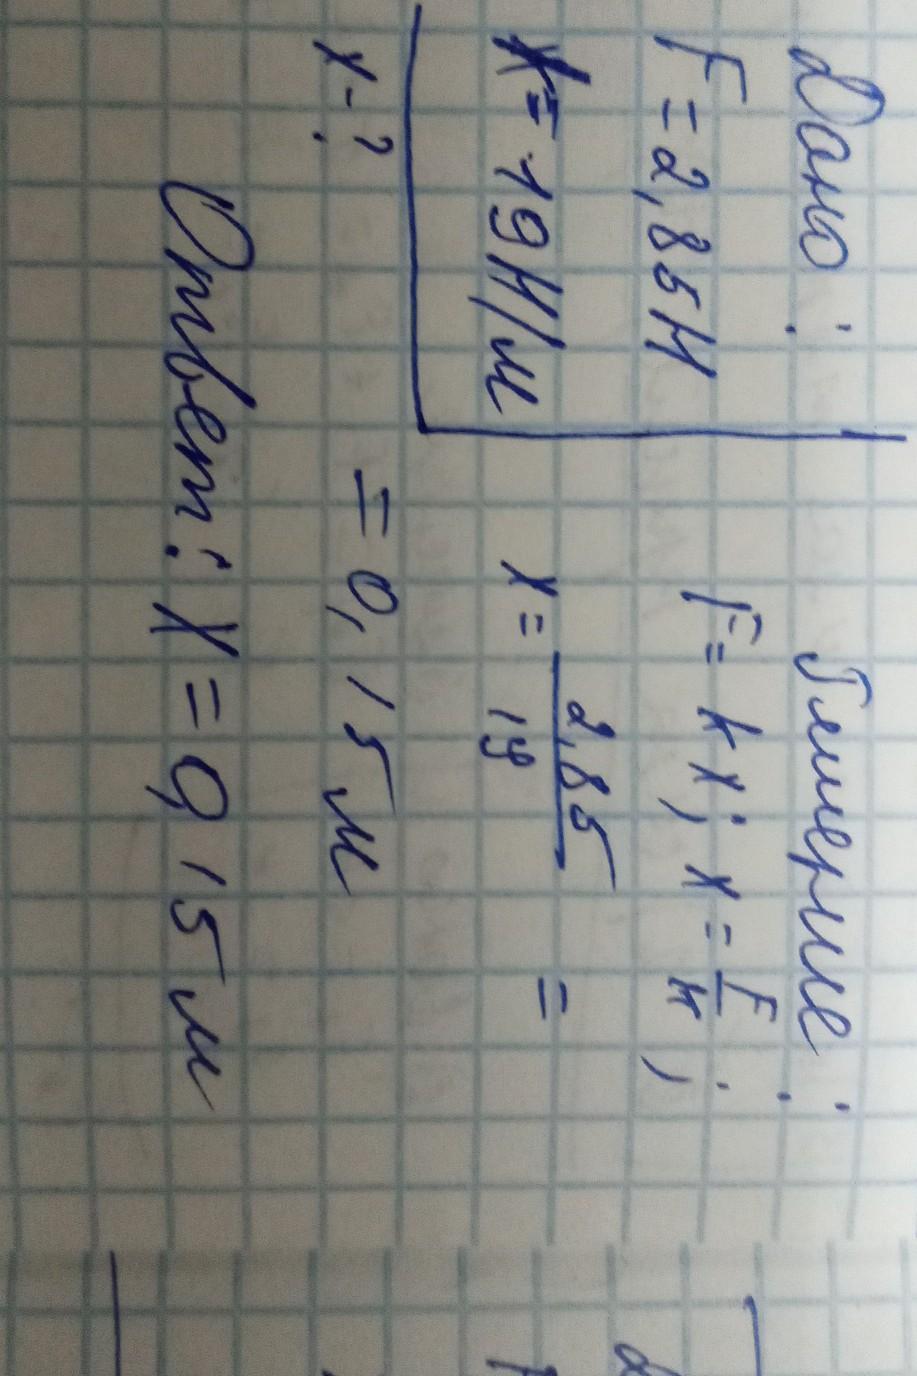 Дано:
F = 2,85 Н
k = 19 Н/м
x - ?
Решение:
F = kx; x = F/k;
x = 2,85/19 =
= 0,15 м
Ответ: x = 0,15 м